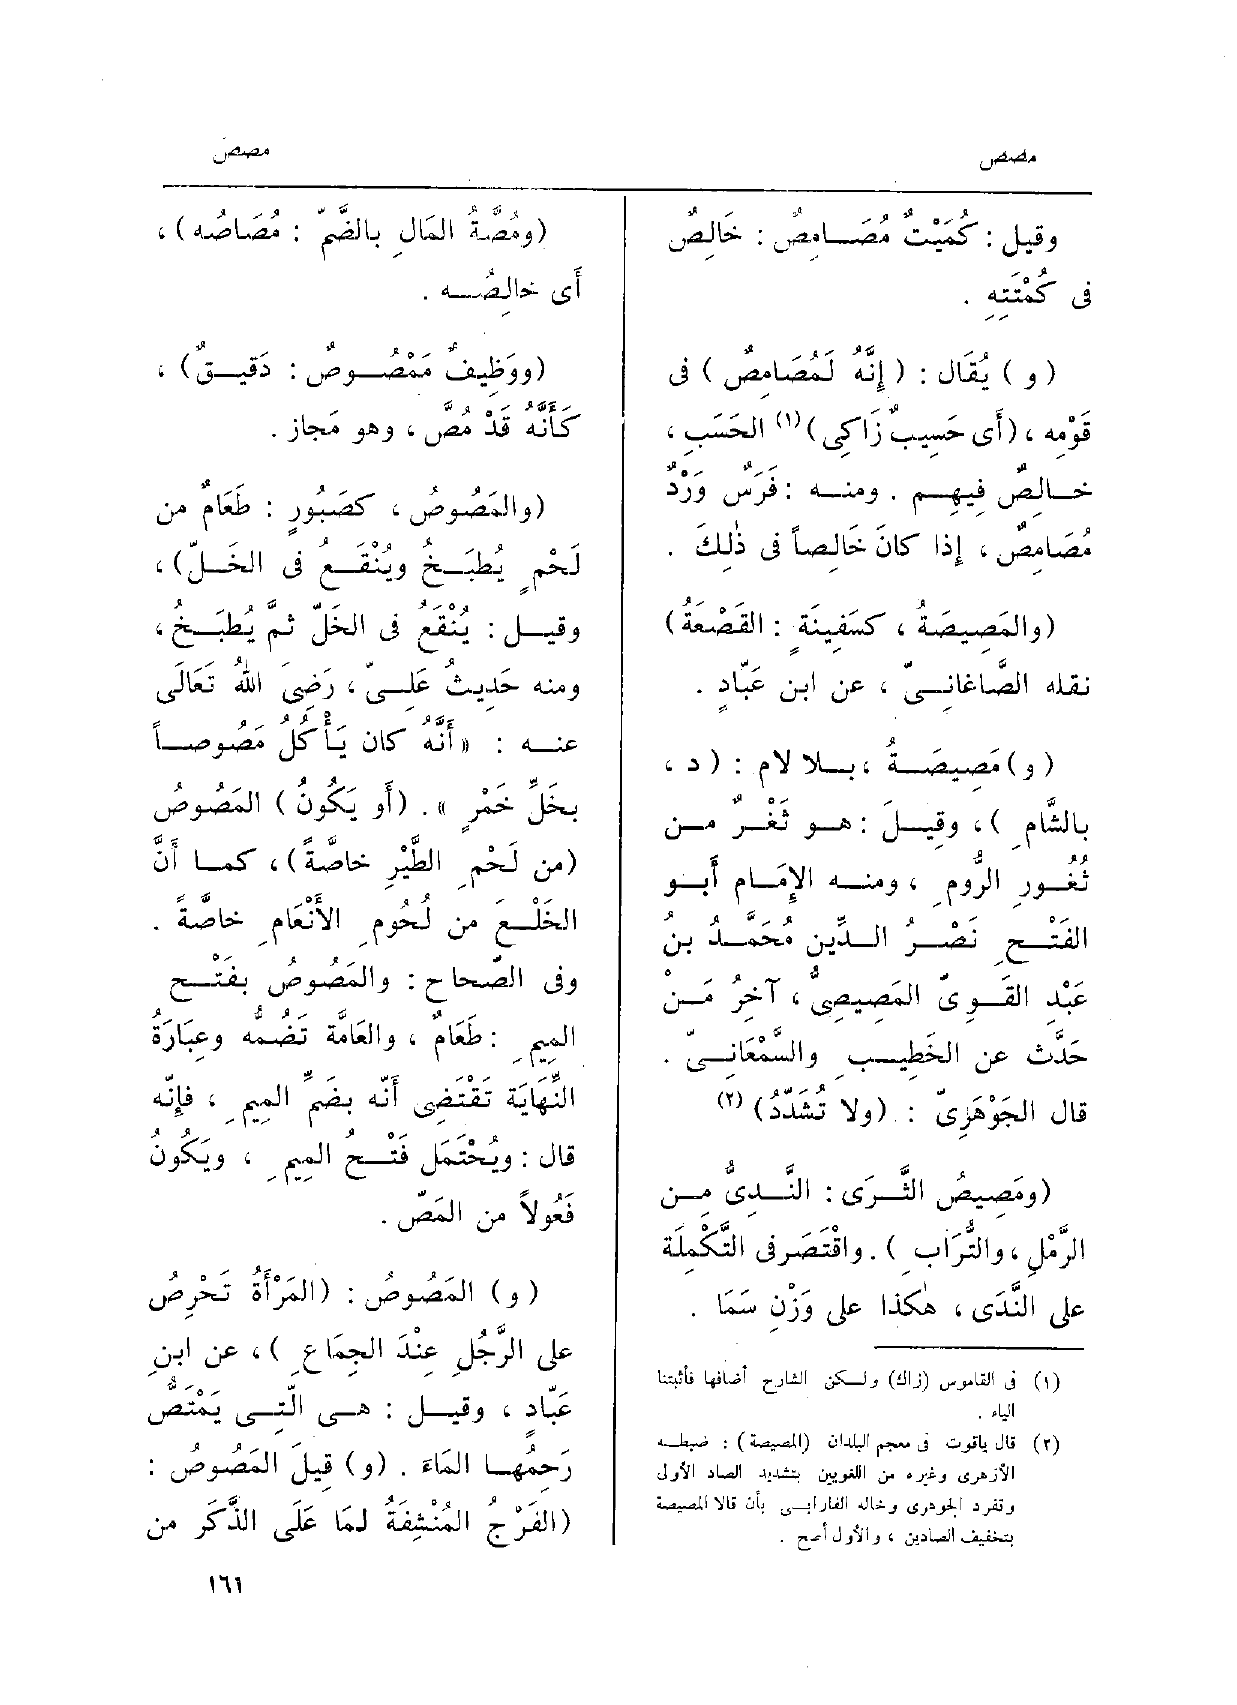 مصص
مصص
وقيل : كُمَيْتٌ مُصَامِصٌ : خَالِصٌ
فى كُمْتَتِهِ .
( و ) يُقَال : ( إِنَّهُ لَمُصَامِصٌ ) فى
قَوْمِه ، ( أَى حَسِيبٌ زَاكِى ) (١) الحَسَبِ ،
خالِصٌ فِيهِم . ومنه : فَرَسٌ وَرْدٌ
مُصَامِصٌ ، إِذا كانَ خَالِصاً فى ذٰلِكَ .
( والمَصِيصَةُ ، كسَفِينَةٍ : القَصْعَةُ )
نقله الصَّاغَانِىّ ، عن ابن عَبّادٍ .
( و ) مَصِيصَةُ ، بلا لام : ( د ،
بالشَّامِ ) ، وقِيلَ : هو ثَغْرٌ من
ثُغُورِ الرُّومِ ، ومنه الإِمَام أَبو
الفَتْحِ نَصْرُ الدِّين مُحَمَّدُ بنُ
عَبْدِ القَوِىّ المَصِيصِىُّ ، آخِرُ مَنْ
حَدَّث عن الخَطِيبِ والسَّمْعَانِىّ .
قال الجَوْهَرِىّ : ( ولا تُشَدّدُ ) (٢)
( ومَصِيصُ الثَّرَى : النَّدِىُّ من
الرَّمْلِ ، والتُّرَابِ ) . واقْتَصَر فى التَّكْمِلَة
على النَّدَى ، هٰكذا على وَزْنِ سَمَا .
(١) فى القاموس (زاك) ولكن الشارح أضافها فأثبتنا
الياء .
(٢) قال ياقوت فى معجم البلدان (المصيصة) : ضبطه
الأزهرى وغيره من اللغويين بتشديد الصاد الأول
وتفرد الجوهرى وخاله الفارابى بأن قالا المصيصة
بتخفيف الصادين ، والأول أصح .
( ومُصَّةُ المَالِ بالضَّمّ : مُصَاصُه ) ،
أَى خالِصُه .
( ووَظِيفٌ مَمْصُوصٌ : دَقِيقٌ ) ،
كأَنَّهُ قَدْ مُصَّ ، وهو مَجاز .
( والمَصُوصُ ، كصَبُورٍ : طَعَامٌ من
لَحْمٍ يُطبَخُ ويُنْقَعُ فى الخَلّ ) ،
وقيل : يُنْقَعُ فى الخَلّ ثمَّ يُطبَخُ ،
ومنه حَدِيثُ عَلِىّ ، رَضِىَ اللهُ تَعَالَى
عنه : « أَنَّهُ كان يَأْكُلُ مَصُوصاً
بخَلِّ خَمْرٍ » . ( أَو يَكُونُ ) المَصُوصُ
( من لَحْمِ الطَّيْرِ خاصَّةً ) ، كما أَنَّ
الخَلْعَ من لُحُومِ الأَنْعَامِ خاصَّةً .
وفى الصّحاح : والمَصُوصُ بفَتْح
المِيمِ : طَعَامٌ ، والعَامَّة تَضُمُّه وعِبَارَةُ
النِّهَايَة تَقْتَضِى أَنّه بضَمِّ المِيمِ ، فإِنّه
قال : ويُحْتَمَل فَتْحُ المِيمِ ، ويَكُونُ
فَعُولاً من المَصّ .
( و ) المَصُوصُ : ( المَرْأَةُ تَحْرِصُ
على الرَّجُلِ عِنْدَ الجِمَاعِ ) ، عن ابنِ
عَبّادٍ ، وقيل : هى الّتى يَمْتَصُّ
رَحِمُها المَاءَ . ( و ) قيلَ المَصُوصُ :
( الفَرْجُ المُنْشِفَةُ لمَا عَلَى الذَّكَرِ من
١٦١